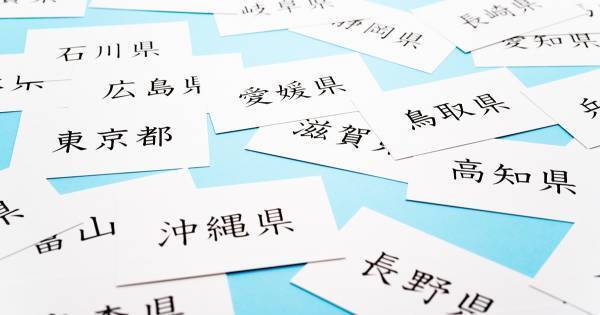 岐阜県
静岡県
長崎県
愛知県
石川県
広島県
愛媛県
鳥取県
東京都
滋賀県
高知県
富山
沖縄県
長野県
県